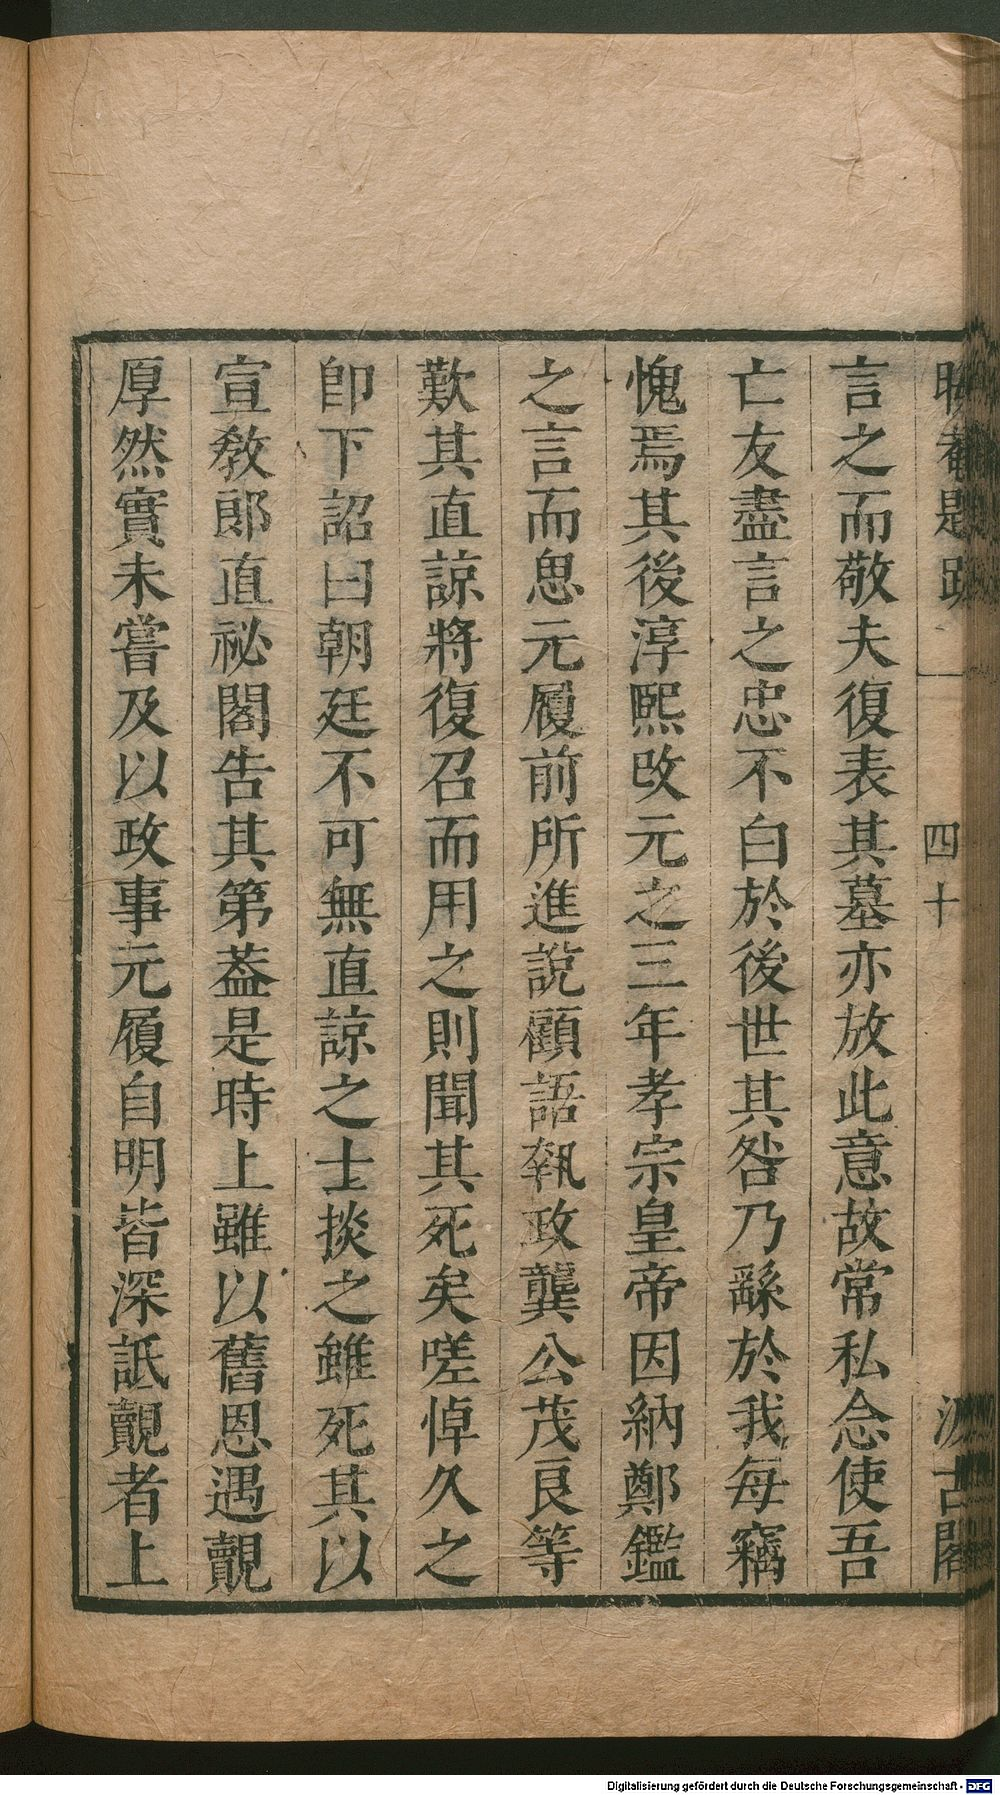 晦菴題跋 一 四十 汲古閣
言之而敬夫復表其墓亦放此意故常私念使吾
亡友盡言之忠不白於後世其咎乃繇於我每竊
愧焉其後淳熙改元之三年孝宗皇帝因納鄭鑑
之言而思元履前所進說顧語執政龔公茂良等
歎其直諒將復召而用之則聞其死矣嗟悼久之
卽下詔曰朝廷不可無直諒之士掞之雖死其以
宣敎郞直祕閣告其第葢是時上雖以舊恩遇覿
厚然實未嘗及以政事元履自明皆深詆覿者上
Digitalisierung gefördert durch die Deutsche Forschungsgemeinschaft - DFG